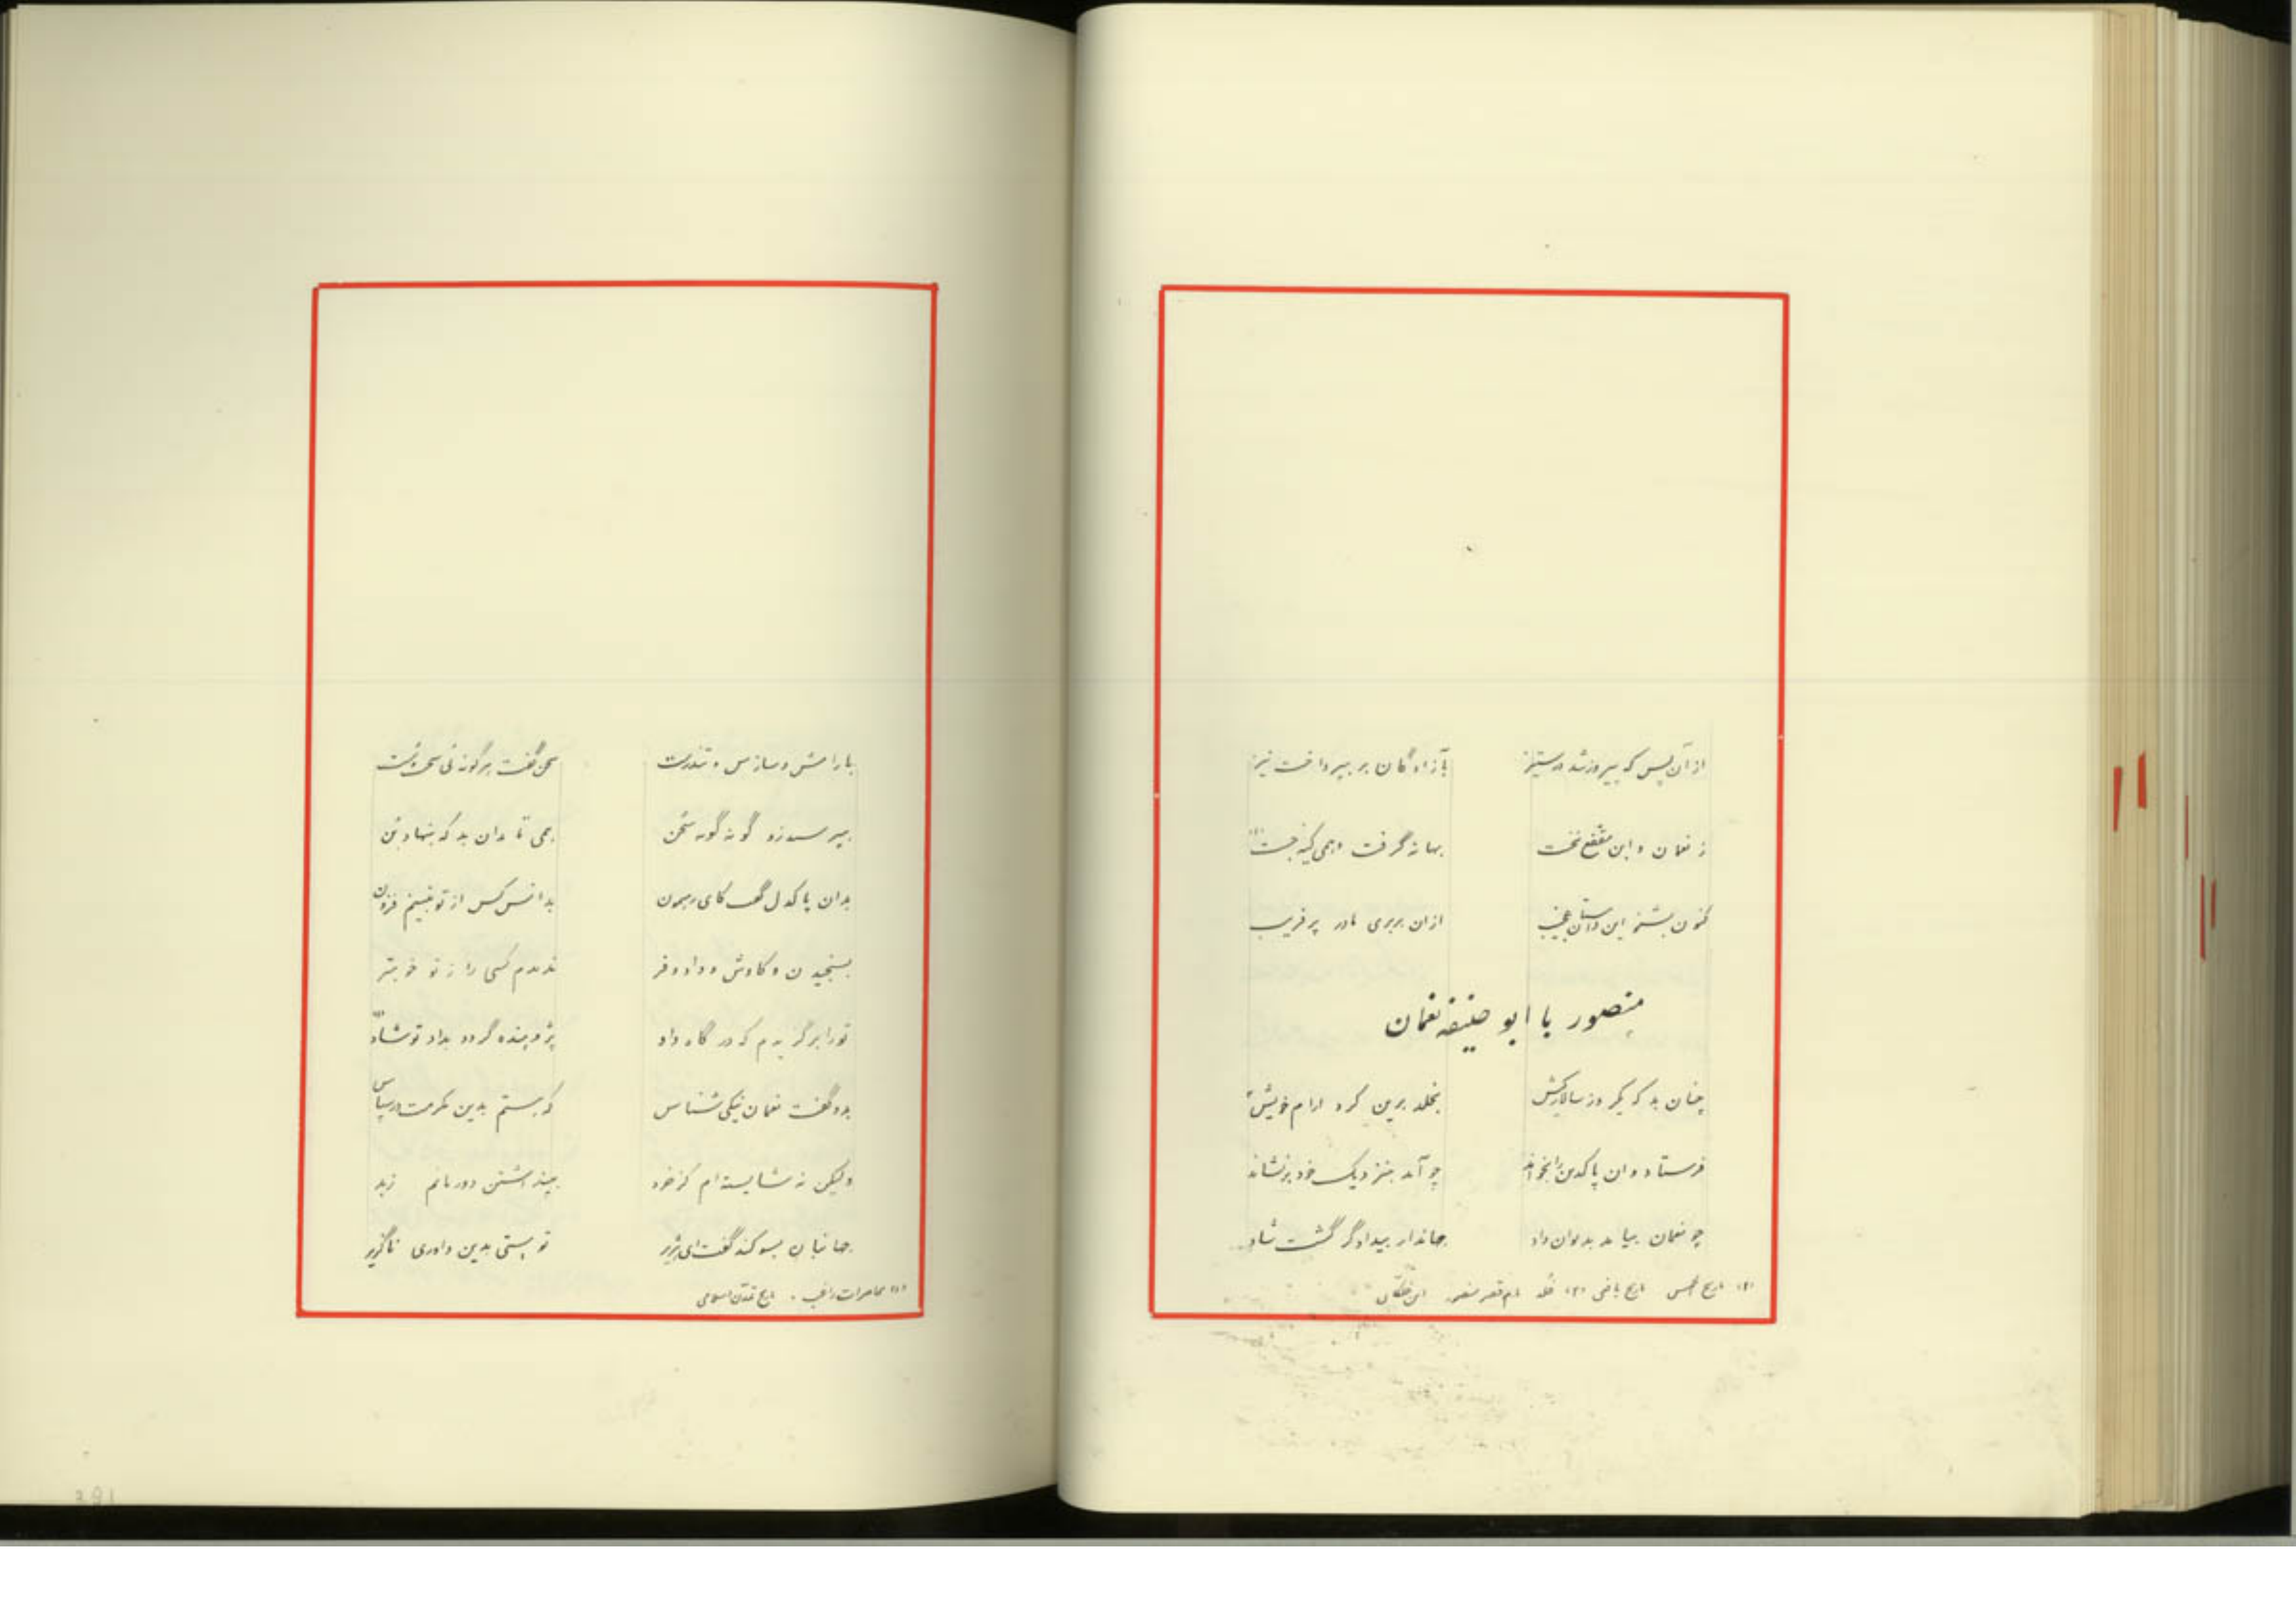 از آن پس که پیروز شد در ستیز بآزادگان بر بپرداخت نیز
ز نعمان و ابن مقفع نخست بهانه گرفت و همی کینه جست
کنون بشنو این داستان عجیب از آن بربری مادر پر فریب
منصور با ابو حنیفه نعمان
چنان بد که یکروز سالار کش بخلد برین کرد آرام خویش
فرستاد و ان پاکدین را بخواند چو آمد بنزدیک خود برنشاند
چو نعمان بیامد بدیوان داد جهاندار بیدادگر گشت شاد
تاریخ یافعی (۲) خلد نام قصر منصور ابن خلکان
با رامش و سازش و تندرست سخن گفت هرگونه
بپرسید زو گونه گونه سخن همی تا بدان بد که بنهاد بن
بدان پاکدل گفت کای رهنمون بدانش کس از تو نبینم فزون
بسنجیدن و کاوش و داد و فر ندیدم کسی را ز تو خوبتر
تو را برگزیدم که در گاه داد پژوهنده گردد بداد تو شاد
بدو گفت نعمان نیکی شناس که هستم بدین مکرمت در سپاس
ولیکن نه شایسته ام کز خرد دور مانم
جهانبان بسوگند گفت ای تو هستی بدین داوری ناگزیر
(۱) محاضرات راغب . تاریخ تمدن اسلامی